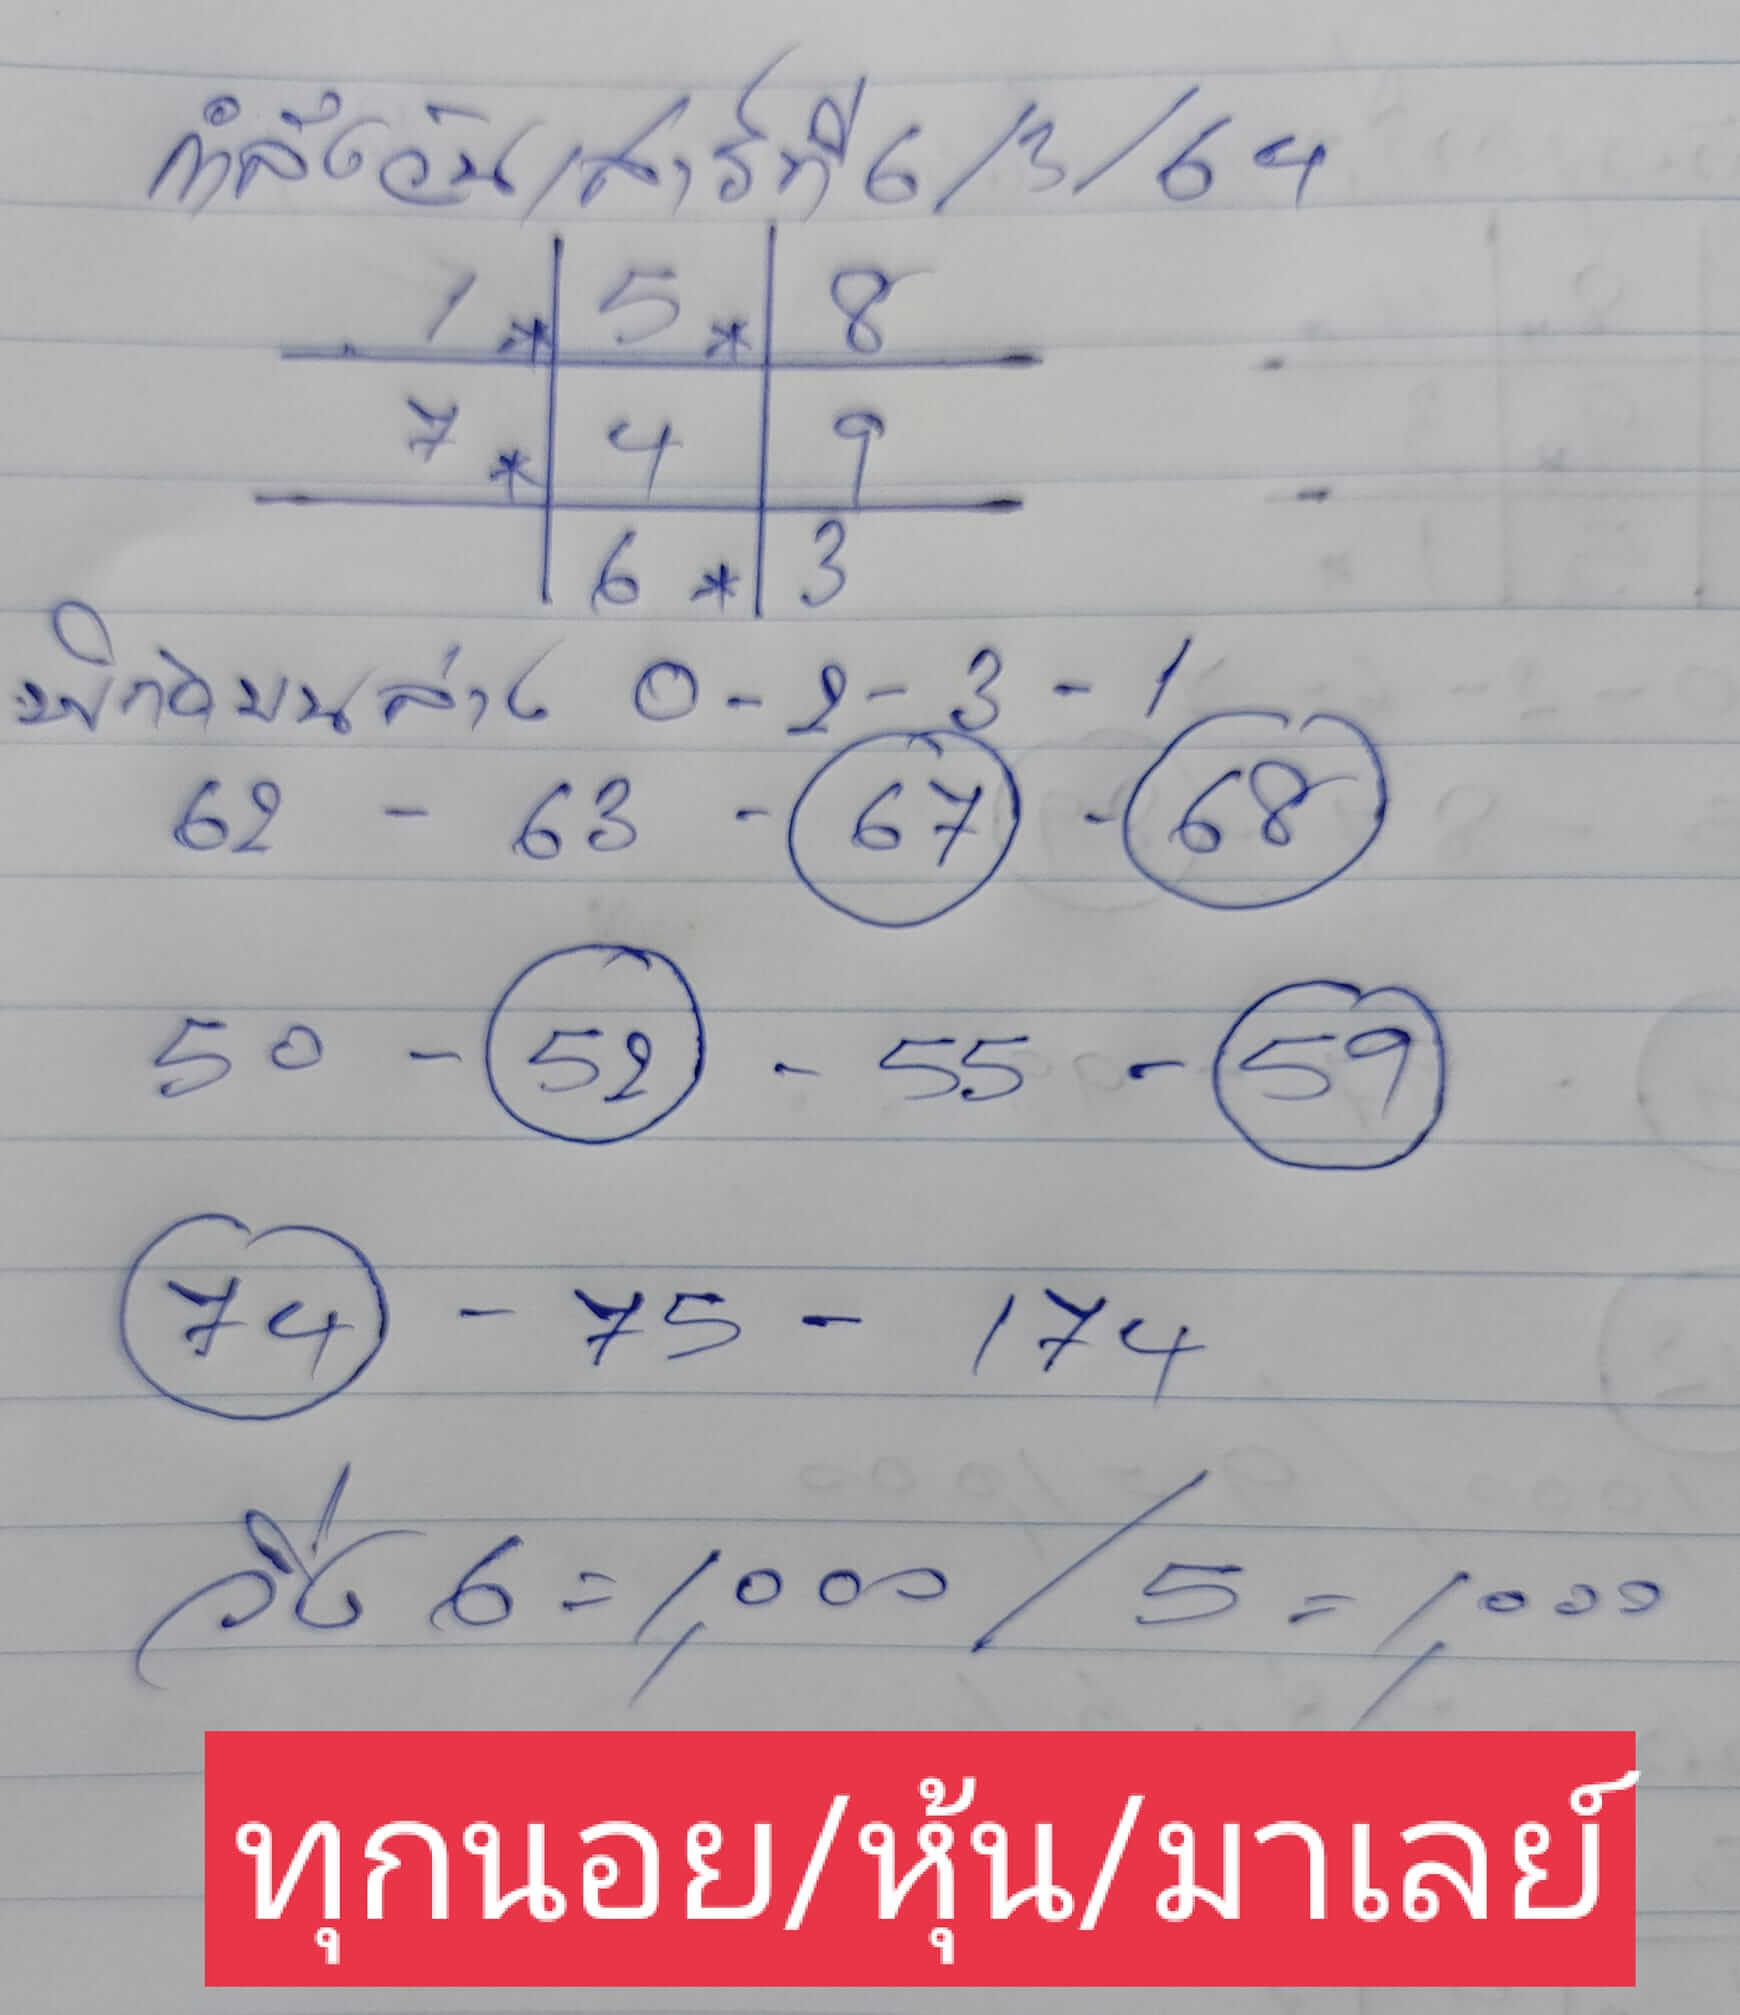 กำลังวันเสาร์ที่ 6/3/64
1 * 5 * 8
7 * 4 9
6 * 3
พิกัดบนล่าง 0 - 2 - 3 - 1
62 - 63 - 67 - 68
50 - 52 - 55 - 59
74 - 75 - 174
วิ่ง 6 = 1,000 / 5 = 1,000
ทุกนอย/หุ้น/มาเลย์